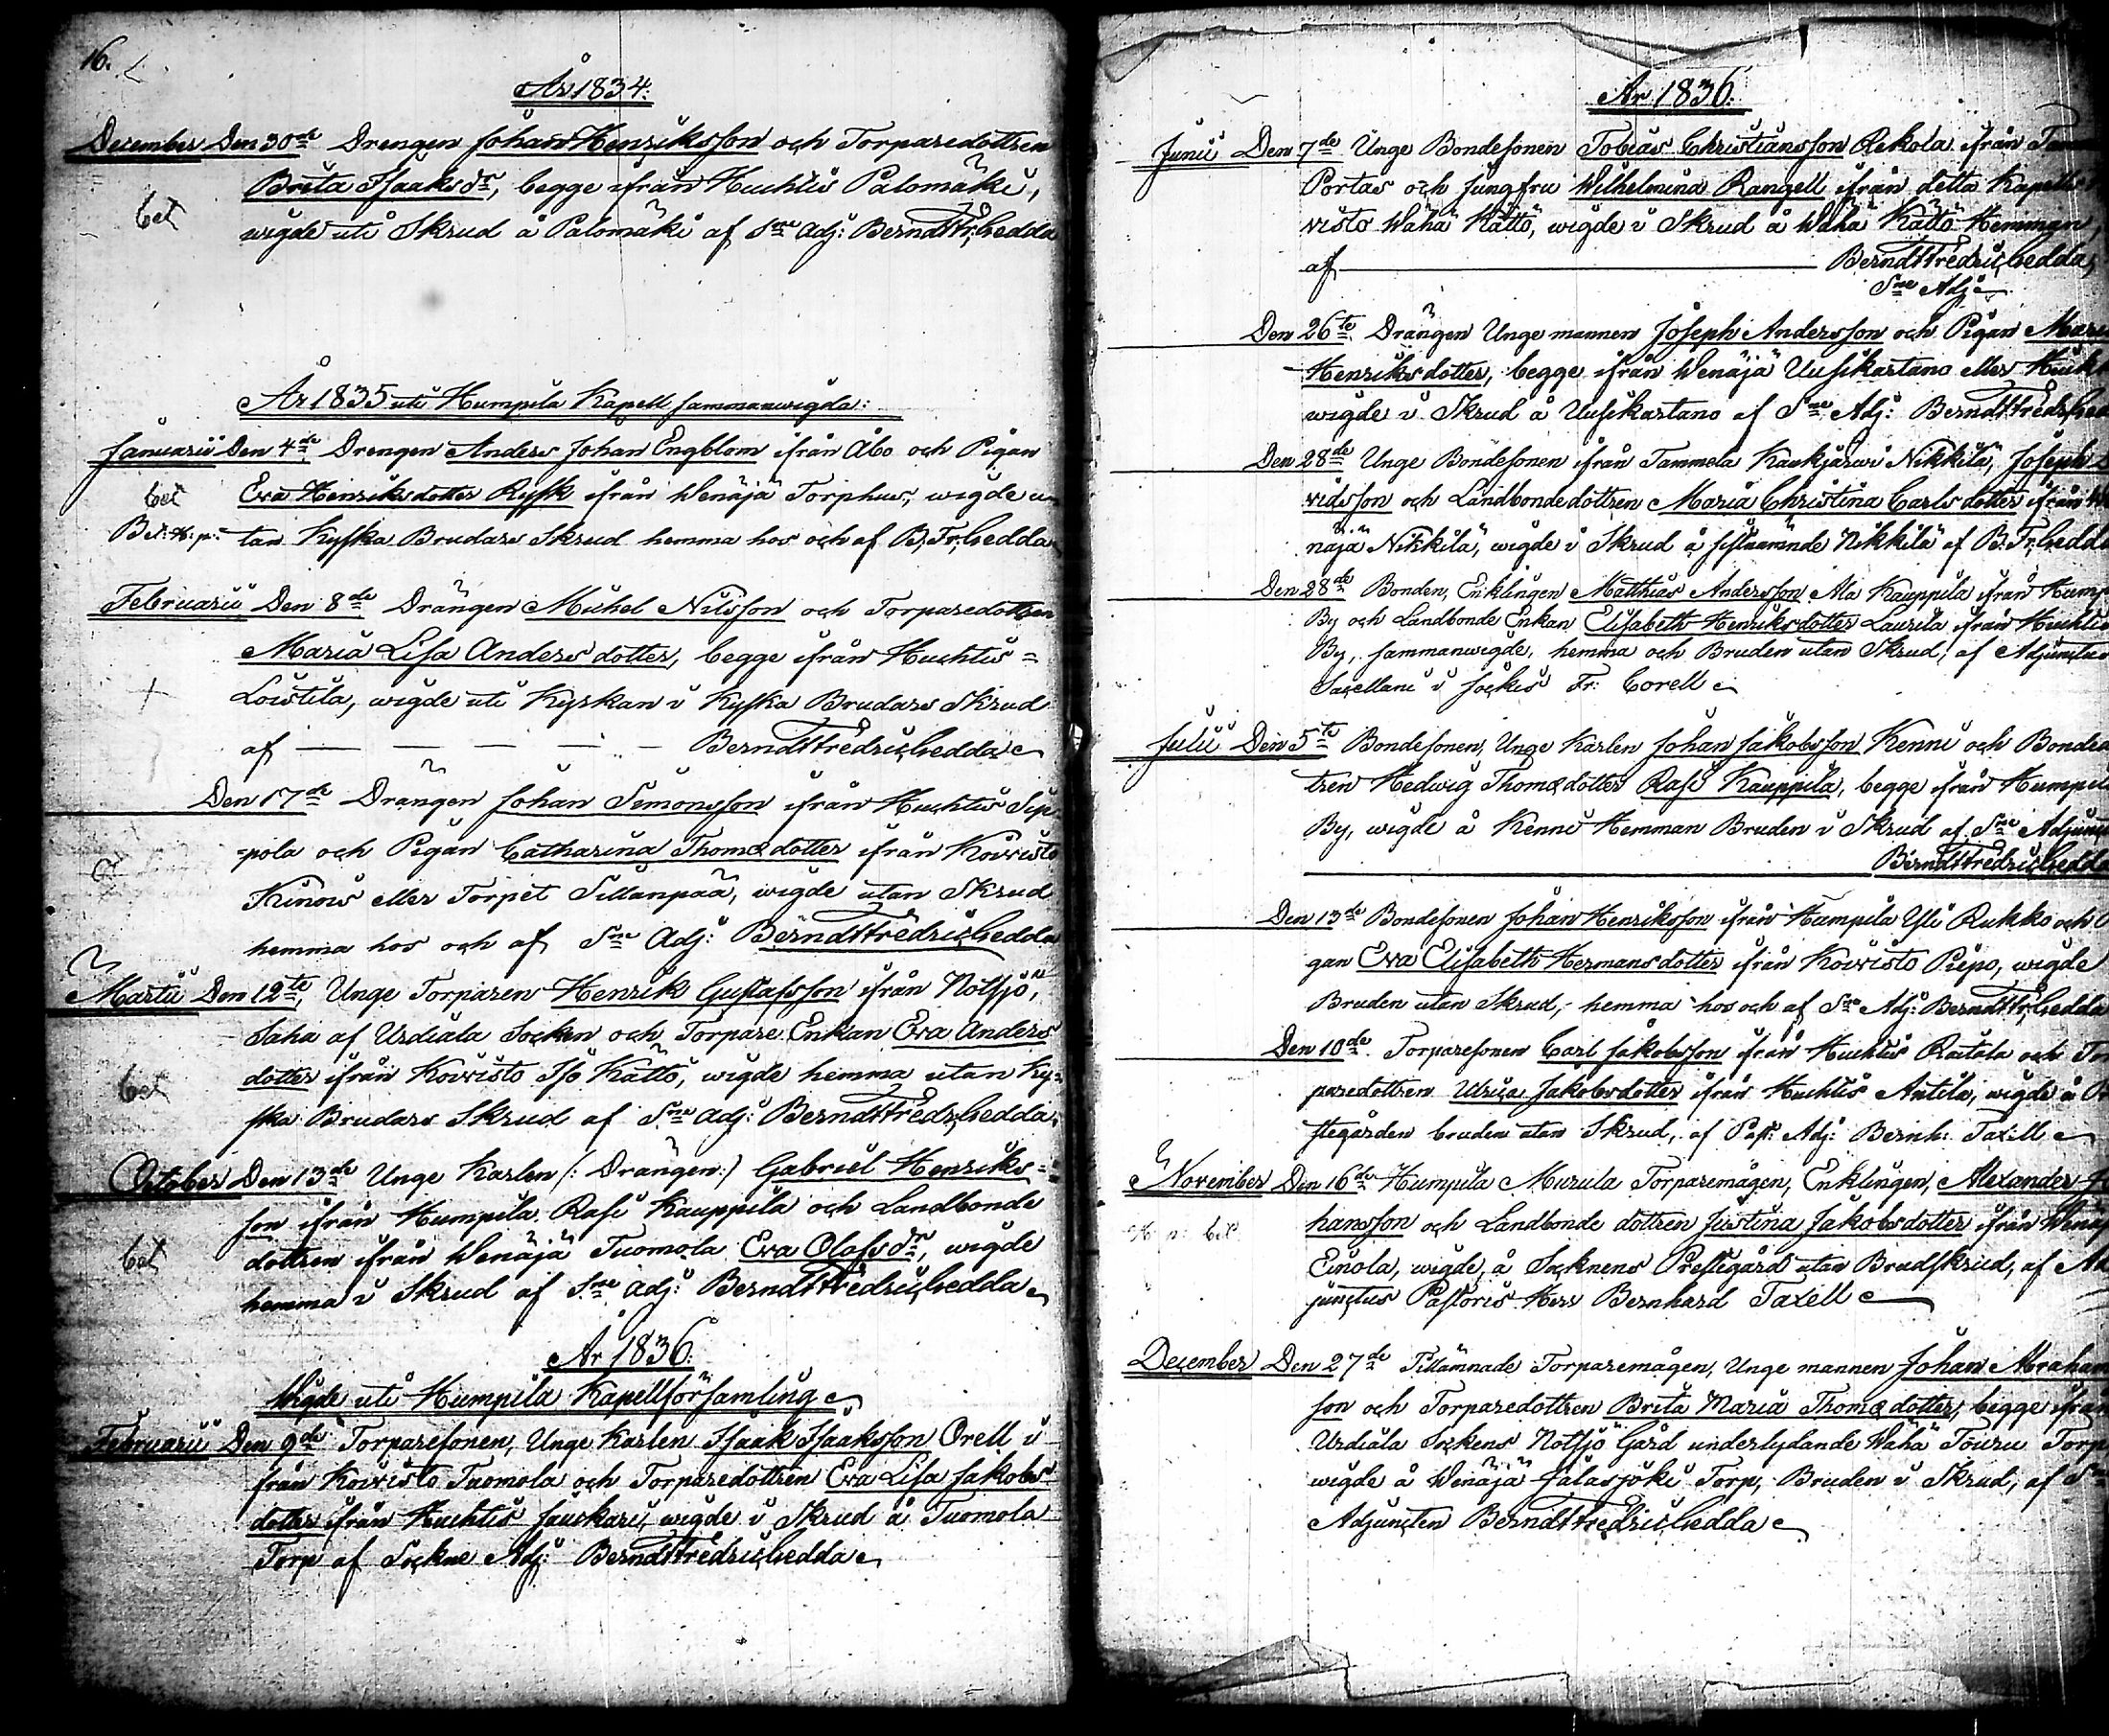 16.
År 1834:
December Den 30de Drengen Johan Henriksson och Torparedottren
Brita Isaaksdr, begge ifrån Huchtis Palomäki,
bet
wigde uti Skrud å Palomäki af Sne Adj: Berndt Fr. Gedda
År 1835 uti Humpila Kapell sammanwigda:
Januarii Den 4de Drengen Anders Johan Engblom ifrån Åbo och Pigan
bet Eva Henriksdotter Rysk ifrån Wenäjä Torphus, wigde u
Bet: H: p: tan Kyska Brudars Skrud hemma hos och af B. Fr. Gedda
Februarii Den 8de Drängen Michel Nilsson och Torparedottren
Maria Lisa Andersdotter, begge ifrån Huchtis=
Loistila, wigde uti Kyrkan i Kyska Brudars Skrud
af — — — — — Berndt Fredric Gedda
Den 17de Drängen Johan Simonsson ifrån Huchtis Sip
=pola och Pigan Catharina Thomædotter ifrån Koivisto
Kinois eller Torpet Sillanpää, wigde utan Skrud
hemma hos och af Sne Adj: Berndt Fredric Gedda
Martii Den 12te, Unge Torparen Henrik Gustafsson ifrån Notsjö,
Saha af Urdiala Socken och Torpare Enkan Eva Anders
bet dotter ifrån Koivisto Iso Kättö, wigde hemma utan Ky=
ska Brudars Skrud af Sne Adj: Berndt Fredr. Gedda
October Den 13de Unge Karlen /: Drängen:/ Gabriel Henriks=
son ifrån Humpila Rasi Kauppila och Landbonde
bet dottren ifrån Wenäjä Tuomola Eva Olofsdr, wigde
hemma i Skrud af Sne Adj: Berndt Fredric Gedda
År 1836.
Wigde uti Humpila Kapellförsamling
Februarii Den 9de Torparesonen, Unge Karlen Isaak Isaksson Orell i
från Koivisto Tuomola och Torparedottren Eva Lisa Jakobs
dotter ifrån Huchtis Jauskari, wigde i Skrud å Tuomola
Torp af Sockne Adj: Berndt Fredric Gedda
År 1836.
Junii Den 7de Unge Bondesonen Tobias Christiansson Rekola ifrån
Portas och Jungfru Wilhelmina Rangell ifrån detta Kapells
visto Wähä Kättö, wigde i Skrud å Wähä Kättö Hemman,
af — Berndt Fredric Gedda,
Sne Adj
Den 26te Drängen Unge mannen Joseph Andersson och Pigan Mar
Henriksdotter, begge ifrån Wenäjä Uusikartano eller
wigde i Skrud å Uusikartano af Sne Adj: Berndt Fredr. Ged
Den 28de Unge Bondesonen ifrån Tammela Kaukjärwi Nikkilä, Joseph
vidsson och Landbondedottren Maria Christina Carlsdotter ifrån We
näjä Nikkilä, wigde i Skrud å sistnämnde Nikkilä af B. Fr. Gedda
Den 28de Bonden, Enklingen Matthias Andersson Ala Kauppila ifrån Hump
By och Landbonde Enkan Elisabeth Henriksdotter Laurila ifrån Huchtis
By, sammanwigde, hemma och Bruden utan Skrud, af Adjunctus
Sacellani i Jockis Fr: Corell
Julii Den 5te Bondesonen, Unge Karlen Johan Jakobsson Kenni och Bondedo
tren Hedwig Thomædotter Rasi Kauppila, begge ifrån Humpila
By, wigde å Kenni Hemman Bruden i Skrud af Sne Adjunct
Berndt Fredric Gedda
Den 13de Bondesonen Johan Henriksson ifrån Humpila Yli Rukko och
gan Eva Elisabeth Hermansdotter ifrån Koivisto Piepo, wigde
Bruden utan Skrud, hemma hos och af Sne Adj: Berndt Fr. Gedda
Den 10de Torparesonen Carl Jakobsson ifrån Huchtis Raitala och Tor
paredottren Ulrica Jakobsdotter ifrån Huchtis Antila, wigde å Pr
stegården bruden utan Skrud, af Past: Adj: Bernh: Taxell
November Den 16de Humpila Murula Torparemågen, Enklingen, Alexander Jo
H: p: bet hansson och Landbonde dottren Justina Jakobsdotter ifrån Wenäj
Einola, wigde, å Socknens Prestegård utan Brudskrud, af Ad
junctus Pastoris Herr Bernhard Taxell
December Den 27de Tillämnade Torparemågen, Unge mannen Johan Abraham
son och Torparedottren Brita Maria Thomædotter, begge ifrån
Urdiala Sockens Notsjö Gård underlydande Wähä Touru Torp
wigde å Wenäjä Jalasjöki Torp, Bruden i Skrud, af Sne
Adjuncten Berndt Fredric Gedda